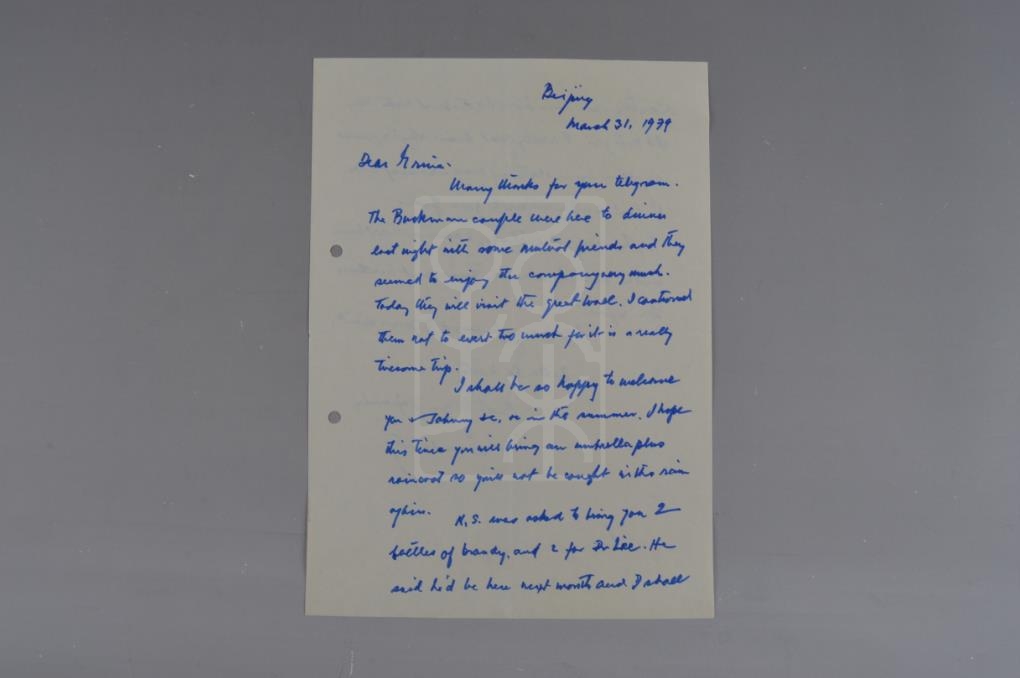 Beijing
March 31, 1979
Dear
Many thanks for your telegram.
The Buckman couple were here to dinner
last night with some mutual friends and they
seemed to enjoy the company very much.
Today they will visit the great wall. I cautioned
them not to exert too much for it is a really
tiresome trip.
I shall be so happy to welcome
you + Johnny in the summer. I hope
this time you will bring an umbrella plus
raincoat so you'll not be caught in the rain
again. K.S. was asked to bring you 2
bottles of brandy, and 2 for Dr Lee. He
said he'd be here next month and I shall